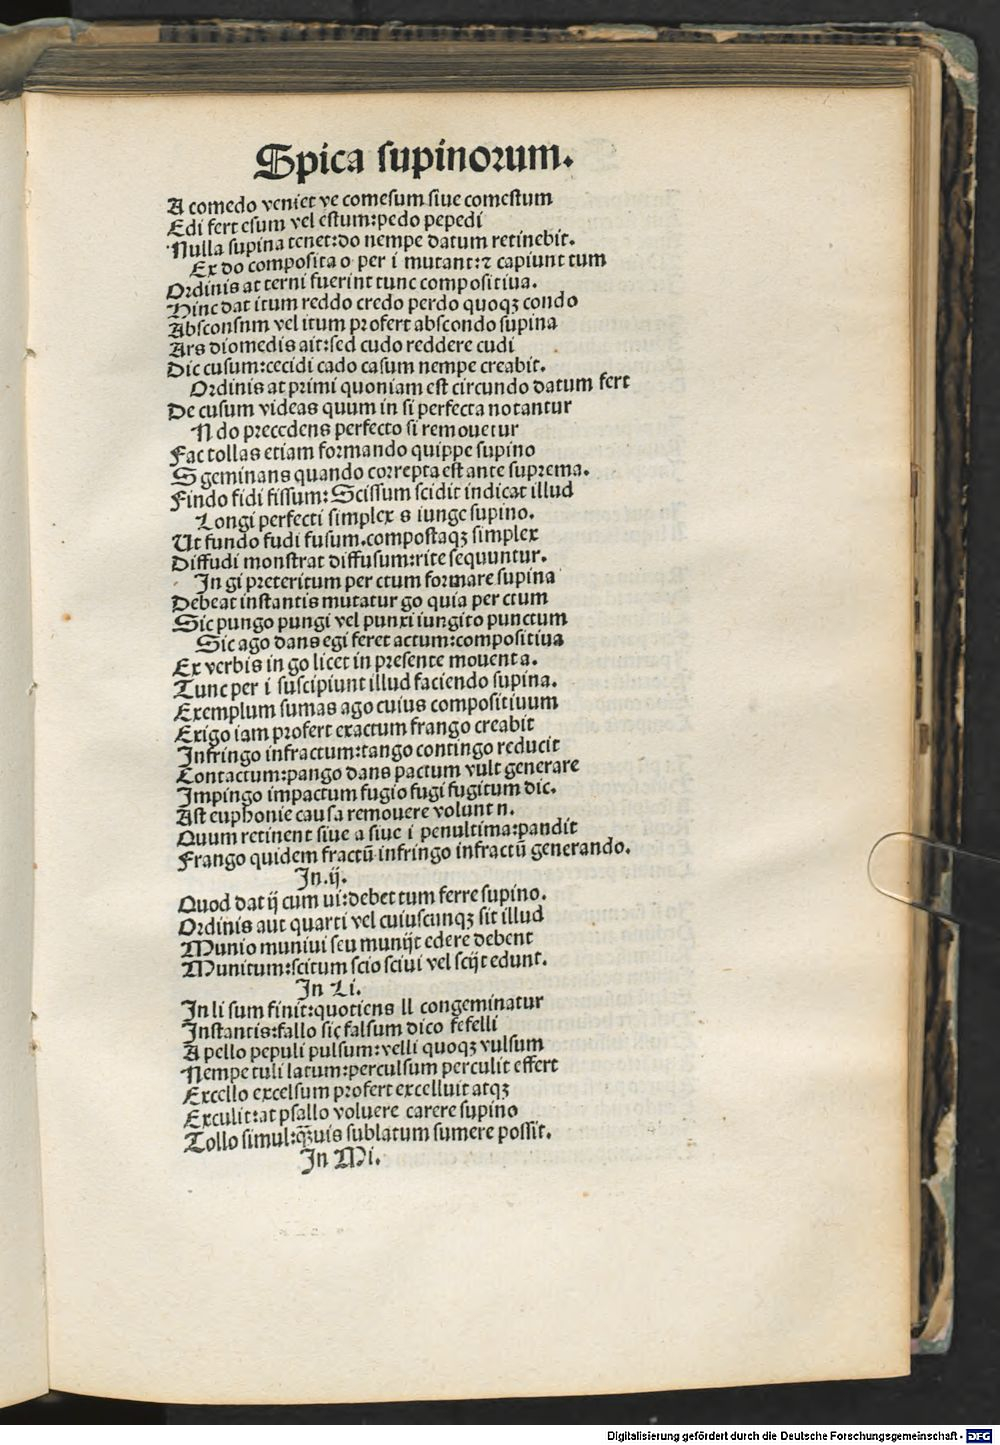 Spica ſupinoꝛum.
A comedo veniet ve comeſum ſiue comeſtum
Edi fert eſum vel eſtum:pedo pepedi
Nulla ſupina tenet:do nempe datum retinebit.
Ex do compoſita o per i mutant:⁊ capiunt tum
Oꝛdinis at terni fuerint tunc compoſitiua.
Hinc dat itum reddo credo perdo quoqꝫ condo
Abſconſum vel itum pꝛofert abſcondo ſupina
Ars diomedis ait:ſed cudo reddere cudi
Dic cuſum:cecidi cado caſum nempe creabit.
Oꝛdinis at pꝛimi quoniam eſt circundo datum fert
De cuſum videas quum in ſi perfecta notantur
N do pꝛecedens perfecto ſi remouetur
Fac tollas etiam foꝛmando quippe ſupino
S geminans quando coꝛrepta eſt ante ſupꝛema.
Findo fidi fiſſum:Sciſſum ſcidit indicat illud
Longi perfecti ſimplex s iunge ſupino.
Ut fundo fudi fuſum.compoſtaqꝫ ſimplex
Diffudi monſtrat diffuſum:rite ſequuntur.
In gi pꝛeteritum per ctum foꝛmare ſupina
Debeat inſtantis mutatur go quia per ctum
Sic pungo pungi vel punxi iungito punctum
Sic ago dans egi feret actum:compoſitiua
Ex verbis in go licet in pꝛeſente mouent a.
Tunc per i ſuſcipiunt illud faciendo ſupina.
Exemplum ſumas ago cuius compoſitiuum
Exigo iam pꝛofert exactum frango creabit
Infringo infractum:tango contingo reducit
Contactum:pango dans pactum vult generare
Impingo impactum fugio fugi fugitum dic.
Aſt euphonie cauſa remouere volunt n.
Quum retinent ſiue a ſiue i penultima:pandit
Frango quidem fractū infringo infractū generando.
In.ij.
Quod dat ij cum ui:debet tum ferre ſupino.
Oꝛdinis aut quarti vel cuiuſcunqꝫ ſit illud
Munio muniui ſeu munijt edere debent
Munitum:ſcitum ſcio ſciui vel ſcijt edunt.
In Li.
In li ſum finit:quotiens ll congeminatur
Inſtantis:fallo ſic falſum dico fefelli
A pello pepuli pulſum:velli quoqꝫ vulſum
Nempe tuli latum:perculſum perculit effert
Excello excelſum pꝛofert excelluit atqꝫ
Exculit:at pſallo voluere carere ſupino
Tollo ſimul:qꝫuis ſublatum ſumere poſſit.
In Mi.
Digitalisierung gefördert durch die Deutsche Forschungsgemeinschaft - DFG